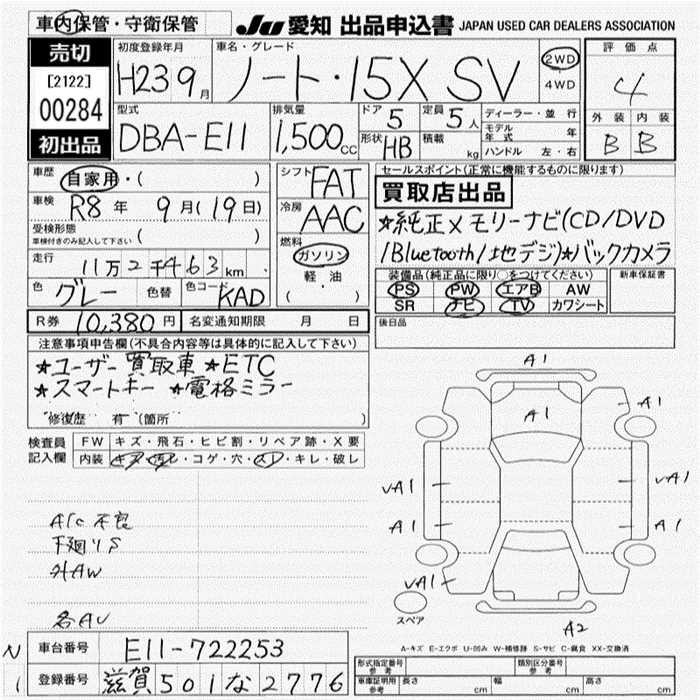 車内保管・守衛保管
JU 愛知 出品申込書 JAPAN USED CAR DEALERS ASSOCIATION
売切
[2122]
00284
初出品
初度登録年月
H23 9月
車名・グレード
ノート・15X SV
2WD
・
4WD
評価点
4
外装 内装
B B
型式
DBA-E11
排気量
1,500cc
ドア 5
定員 5人
形状 HB
積載 kg
ディーラー・並行
モデル年式 年
ハンドル 左・右
車歴 自家用・( )
車検 R8年 9月(19日)
受検形態
車検付きのみ記入して下さい ( )
走行 11万2千463km
色 グレー 色替 色コード KAD
シフト FAT
冷房 AAC
燃料
ガソリン
・
軽・油
( )
セールスポイント(正常に機能するものに限ります)
買取店出品
★純正メモリーナビ(CD/DVD
/Bluetooth/地デジ)★バックカメラ
装備品(純正品に限り○をつけてください)
PS PW エアB AW
SR ナビ TV カワシート
新車保証書
後日品
R券 10,380円 名変通知期限 月 日
注意事項申告欄(不具合内容等は具体的に記入して下さい)
★ユーザー買取車 ★ETC
★スマートキー ★電格ミラー
修復歴 有(箇所 )
検査員
記入欄
FW キズ・飛石・ヒビ割・リペア跡・X要
内装 キズ・汚レ・コゲ・穴・スレ・キレ・破レ
A/C不良
下廻りS
外AW
各AU
A1
A1
A1
VA1
VA1
A1
A1
VA1
スペア
A2
A-キズ E-エクボ U-凹み W-補修跡 S-サビ C-腐食 XX-交換済
N
1
車台番号 E11-722253
登録番号 滋賀501な2776
形式指定番号 参考
類別区分番号 参考
車庫証明用 参考 長さ cm 幅 cm 高さ cm